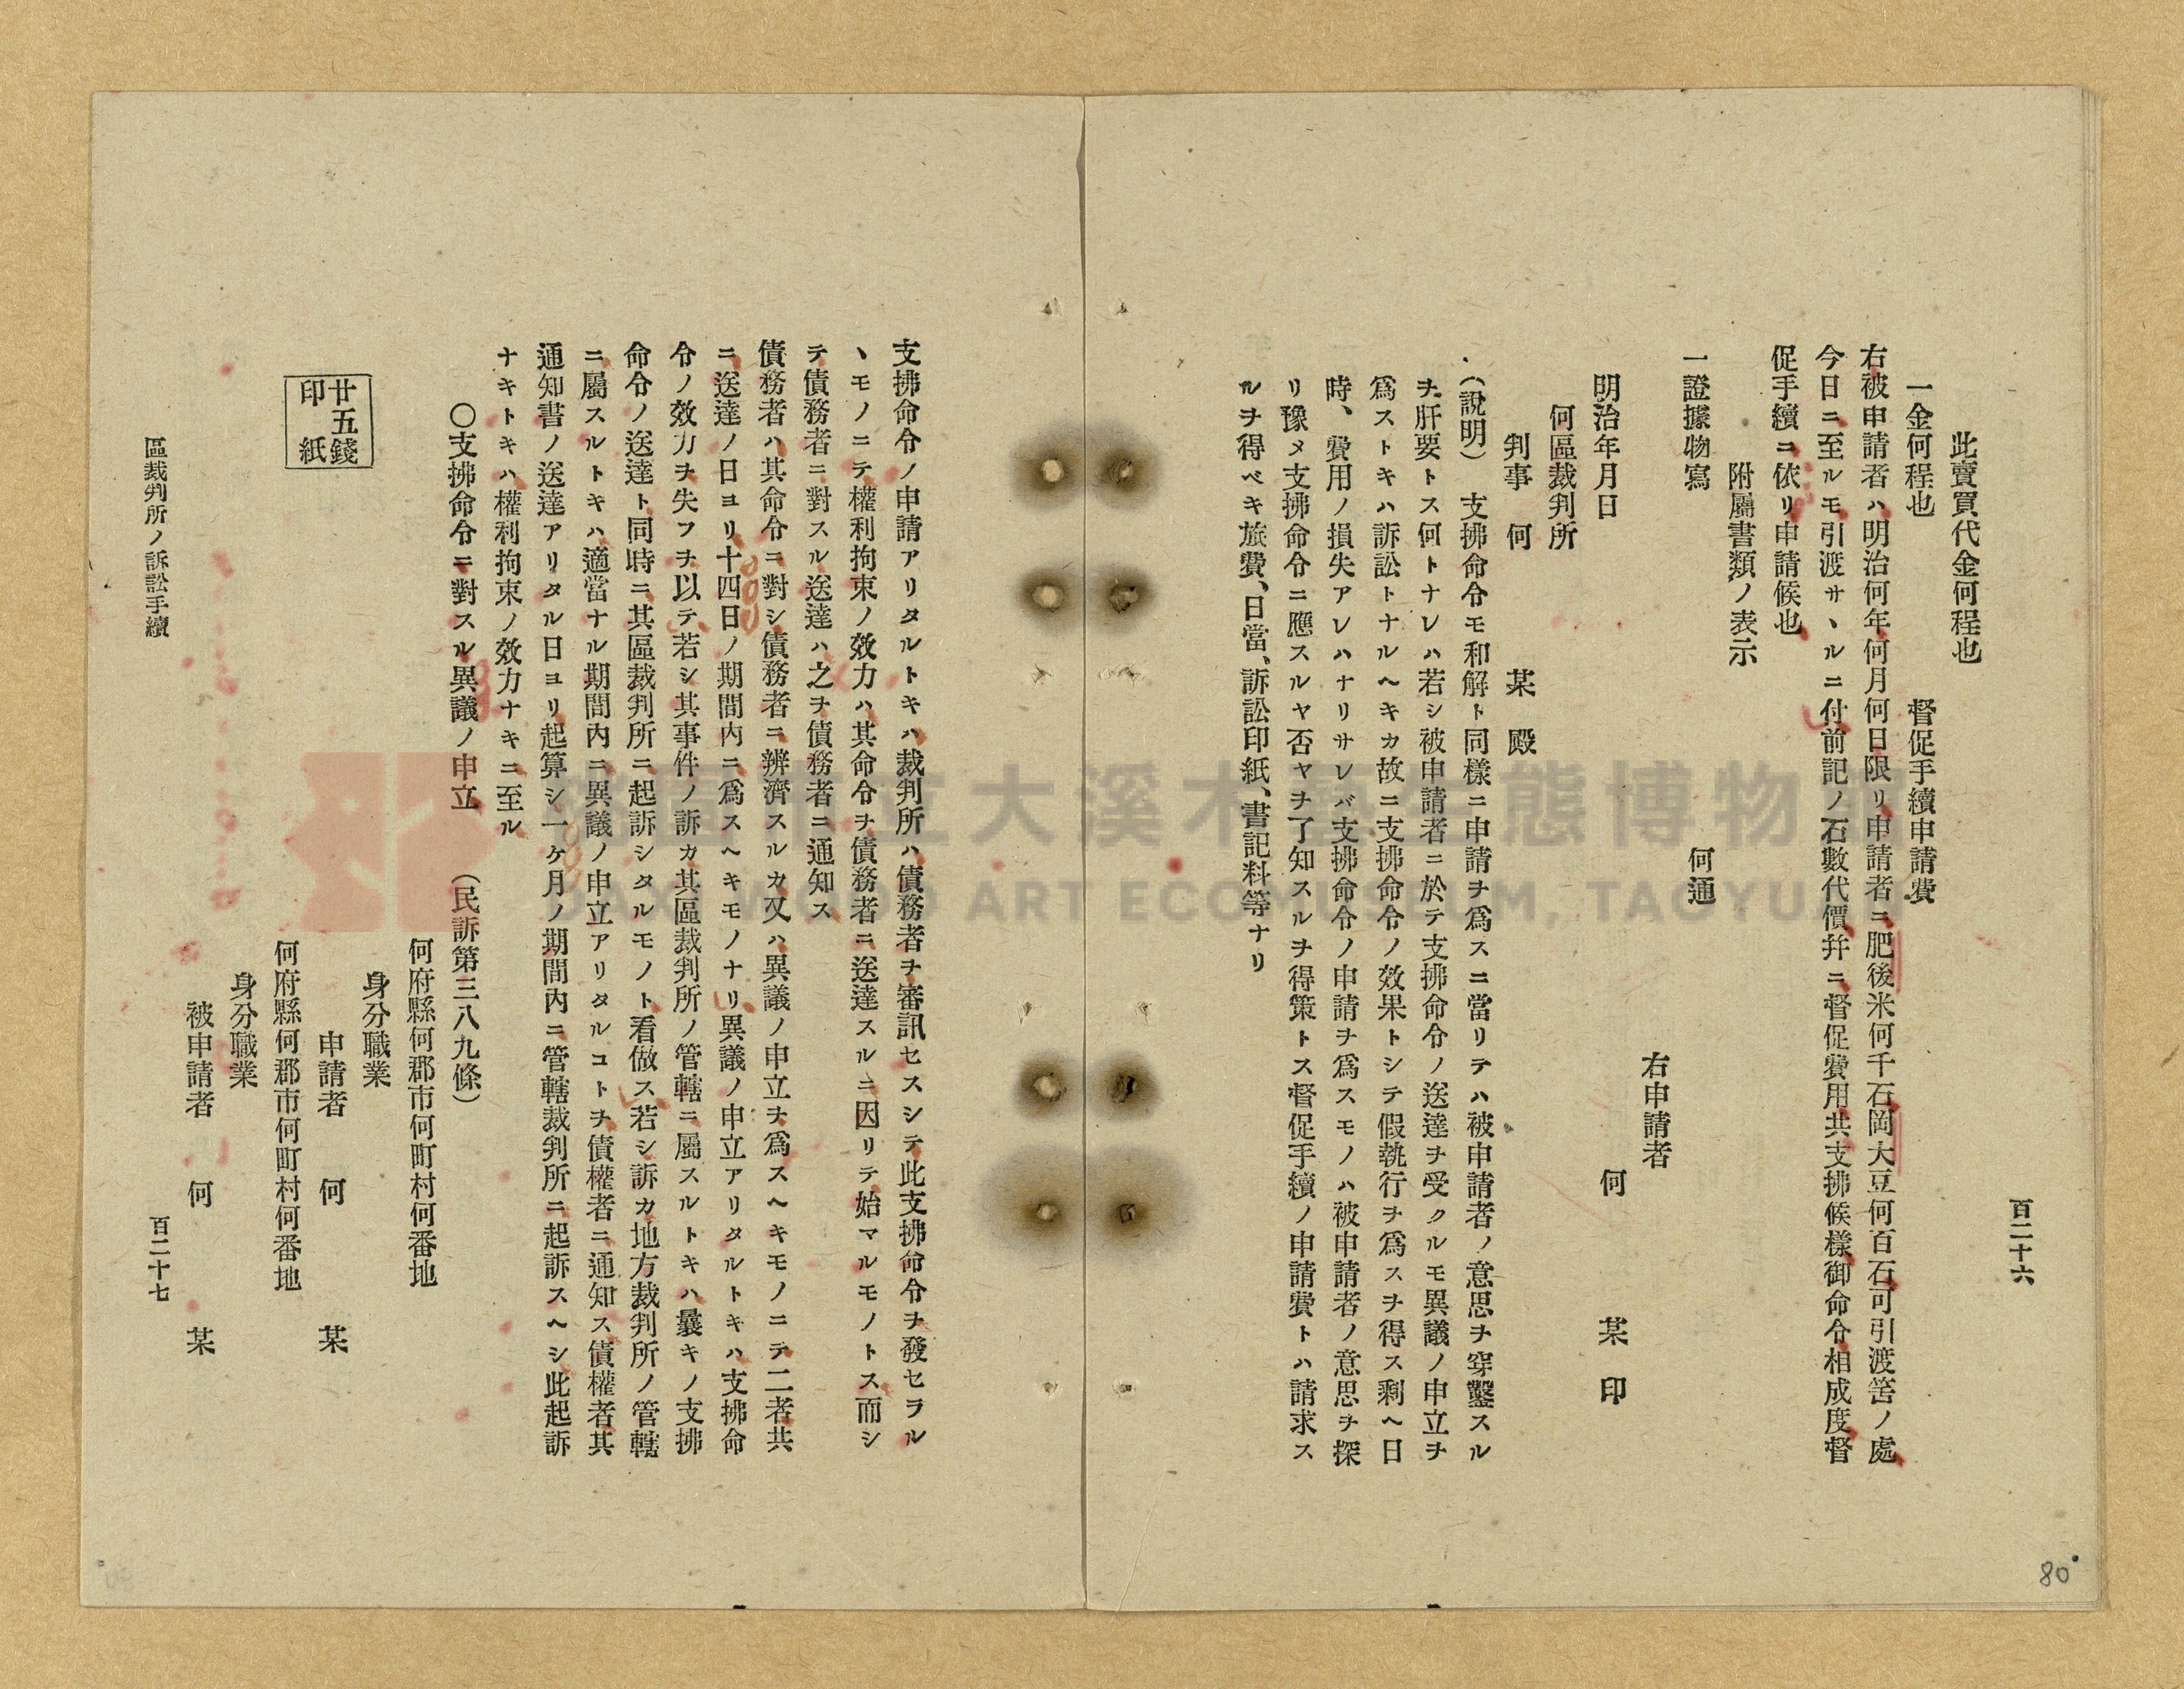 百二十六
此賣買代金何程也
一金何程也　督促手續申請費
右被申請者ハ明治何年何月何日限リ申請者ニ肥後米何千石岡大豆何百石可引渡筈ノ處
今日ニ至ルモ引渡サヽルニ付前記ノ石數代價幷ニ督促費用共支拂候樣御命令相成度督
促手續ニ依リ申請候也
附屬書類ノ表示
一證據物寫　何通
右申請者
何　某　印
明治年月日
何區裁判所
判事　何　某　殿
（說明）　支拂命令モ和解ト同樣ニ申請ヲ爲スニ當リテハ被申請者ノ意思ヲ穿鑿スル
ヲ肝要トス何トナレハ若シ被申請者ニ於テ支拂命令ノ送達ヲ受クルモ異議ノ申立ヲ
爲ストキハ訴訟トナルヘキカ故ニ支拂命令ノ效果トシテ假執行ヲ爲スヲ得ス剩ヘ日
時、費用ノ損失アレハナリサレバ支拂命令ノ申請ヲ爲スモノハ被申請者ノ意思ヲ探
リ豫メ支拂命令ニ應スルヤ否ヤヲ了知スルヲ得策トス督促手續ノ申請費トハ請求ス
ルヲ得ベキ旅費、日當、訴訟印紙、書記料等ナリ
80
支拂命令ノ申請アリタルトキハ裁判所ハ債務者ヲ審訊セスシテ此支拂命令ヲ發セラル
ヽモノニテ權利拘束ノ效力ハ其命令ヲ債務者ニ送達スルニ因リテ始マルモノトス而シ
テ債務者ニ對スル送達ハ之ヲ債務者ニ通知ス
債務者ハ其命令ニ對シ債務者ニ辨濟スルカ又ハ異議ノ申立ヲ爲スヘキモノニテ二者共
ニ送達ノ日ヨリ十四日ノ期間內ニ爲スヘキモノナリ異議ノ申立アリタルトキハ支拂命
令ノ效力ヲ失フヲ以テ若シ其事件ノ訴カ其區裁判所ノ管轄ニ屬スルトキハ曩キノ支拂
命令ノ送達ト同時ニ其區裁判所ニ起訴シタルモノト看倣ス若シ訴カ地方裁判所ノ管轄
ニ屬スルトキハ適當ナル期間內ニ異議ノ申立アリタルコトヲ債權者ニ通知ス債權者其
通知書ノ送達アリタル日ヨリ起算シ一ヶ月ノ期間內ニ管轄裁判所ニ起訴スヘシ此起訴
ナキトキハ權利拘束ノ效力ナキニ至ル
〇支拂命令ニ對スル異議ノ申立　（民訴第三八九條）
何府縣何郡市何町村何番地
身分職業
申請者　何　某
何府縣何郡市何町村何番地
身分職業
被申請者　何　某
廿五錢
印紙
區裁判所ノ訴訟手續
百二十七
桃園市立大溪木藝生態博物館
DAXI WOOD ART ECOMUSEUM, TAOYUAN